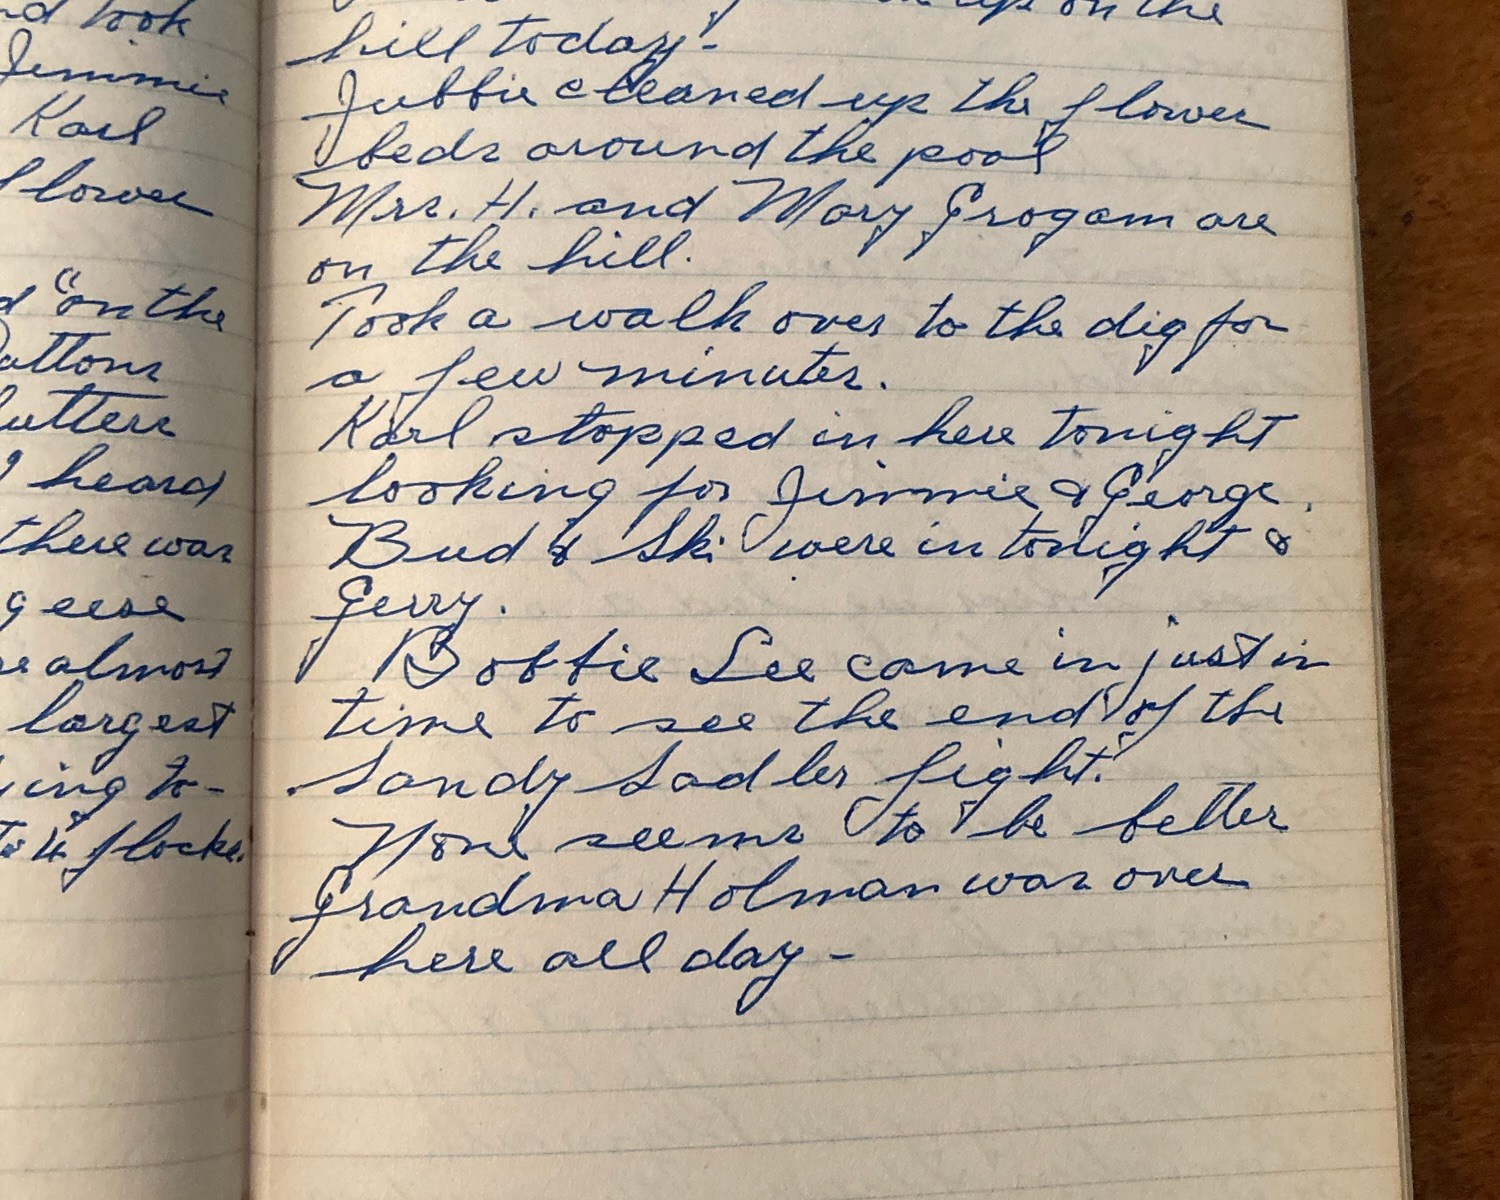 nd took
Jimmie
Karl
flower
d "on the
uttons
utters
I heard
there was
geese
re almost
largest
ying to-
to 4 flocks.
up on the
hill today-
Jubbie cleaned up the flower
beds around the pool
Mrs. H. and Mary Grogam are
on the hill.
Took a walk over to the dig for
a few minutes.
Karl stopped in here tonight
looking for Jimmie & George.
Bud & Ski were in tonight &
Gerry.
Bobbie Lee came in just in
time to see the end of the
Sandy Sadler fight.
None seems to be better
Grandma Holman was over
here all day-